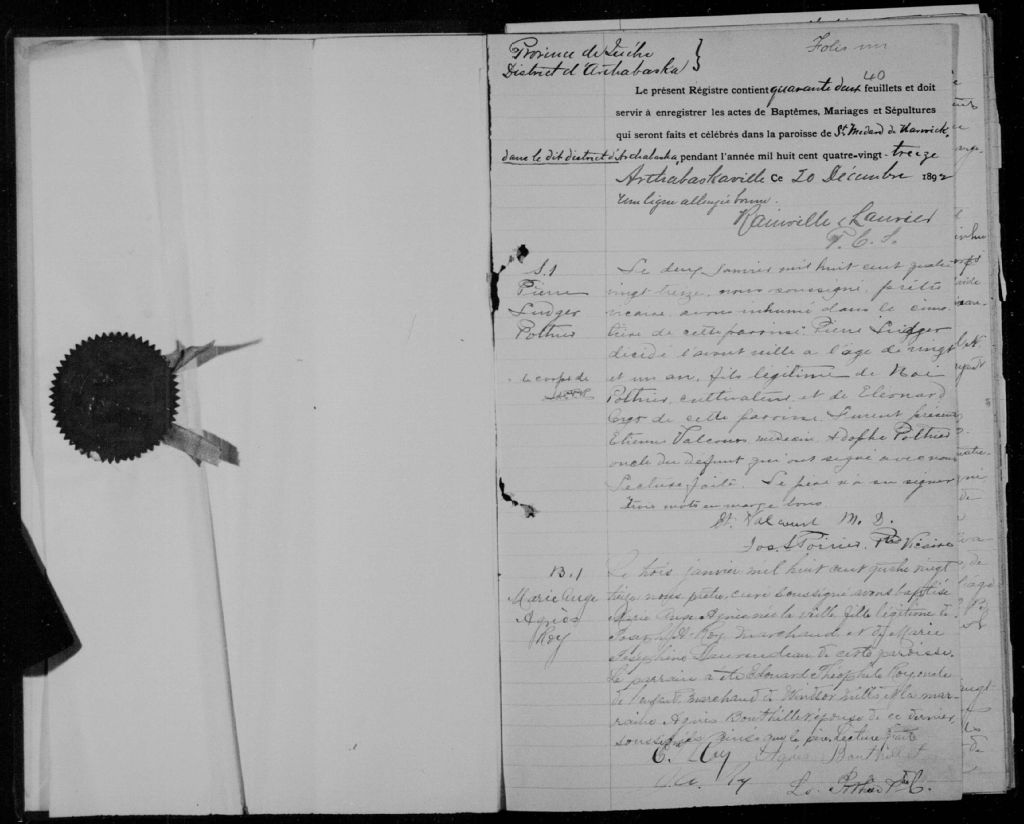 Province de Québec
District d'Arthabaska
Folio un
40
Le présent Régistre contient quarante deux feuillets et doit
servir à enregistrer les actes de Baptêmes, Mariages et Sépultures
qui seront faits et célébrés dans la paroisse de St. Médard de Warwick,
dans le dit district d'Arthabaska, pendant l'année mil huit cent quatre-vingt-treize
Arthabaskaville Ce 20 Décembre 1892
Une ligne allongée bonne.
Rainville & Laurier
P. C. S.
S. 1
Pierre
Ludger
Pothier
le corps de
Le deux Janvier mil huit cent quatre
vingt treize, nous soussigné, prêtre
vicaire, avons inhumé dans le cime-
tière de cette paroisse Pierre Ludger
décédé l'avant veille a l'âge de vingt
et un an, fils légitime de Noé
Pothier, cultivateur et de Eléonard
de cette paroisse. Furent présents
Etienne Valcourt médecin Adolphe Pothier
oncle du défunt qui ont signé avec nous
Lecture faite. Le père n'a su signer
Trois mots en marge bons.
Et. Valcourt M. D.
Jos. Poirier Ptre Vicaire
B. 1
Marie Ange
Agnès
Roy
Le trois janvier mil huit cent quatre vingt
treize nous prêtre, curé soussigné avons baptisé
Marie Ange Agnès née la veille fille légitime de
Joseph A. Roy marchand et de Marie
Joséphine de cette paroisse.
Le parrain a été Edouard Théophile Roy oncle
de l'enfant marchand de Windsor mills et la mar-
raine Agnès Bouthillet épouse de ce dernier,
soussignés ainsi que le père. Lecture faite
E. Roy Agnès Bouthillet